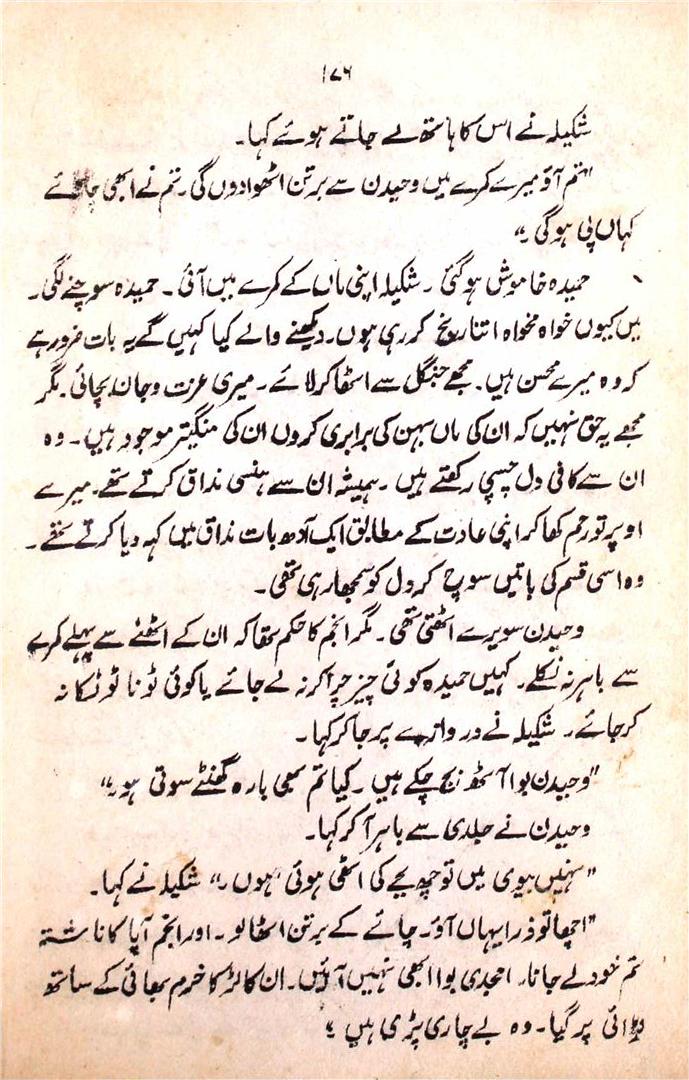 ۱۷۶
شکیلہ نے اس کا ہاتھ لے جاتے ہوئے کہا۔
"تم آؤ میرے کمرے میں وحیدن سے برتن اٹھوا دوں گی۔ تم نے ابھی چائے
کہاں پی ہوگی۔"
حمیدہ خاموش ہوگئی۔ شکیلہ اپنی ماں کے کمرے میں آئی۔ حمیدہ سوچنے لگی۔
میں کیوں خواہ مخواہ اتنا رنج کر رہی ہوں۔ دیکھنے والے کیا کہیں گے یہ بات ضرور ہے
کہ وہ میرے محسن ہیں۔ مجھے جنگل سے اٹھا کر لائے۔ میری عزت وجان بچائی۔ مگر
مجھے یہ حق نہیں کہ ان کی ماں بہن کی برابری کروں ان کی منگیتر موجود ہیں۔ وہ
ان سے کافی دل چسپی رکھتے ہیں۔ ہمیشہ ان سے ہنسی مذاق کرتے تھے۔ میرے
اوپر تو رحم کھا کر اپنی عادت کے مطابق ایک آدھ بات مذاق میں کہہ دیا کرتے تھے۔
وہ اسی قسم کی باتیں سوچ کر دل کو سمجھا رہی تھی۔
وحیدن سویرے اٹھتی تھی۔ مگر انجم کا حکم تھا کہ ان کے اٹھنے سے پہلے کمرے
سے باہر نہ نکلے۔ کہیں حمیدہ کوئی چیز چرا کر نہ لے جائے یا کوئی ٹونا ٹوٹکا نہ
کر جائے۔ شکیلہ نے دروازے پر جا کر کہا۔
"وحیدن بوا آٹھ بج چکے ہیں۔ کیا تم بھی بارہ گھنٹے سوتی ہو۔"
وحیدن نے جلدی سے باہر آ کر کہا۔
"نہیں بیوی میں تو چھ بجے کی اٹھی ہوئی ہوں۔" شکیلہ نے کہا۔
"اچھا تو ذرا یہاں آؤ۔ چائے کے برتن اٹھا لو۔ اور انجم آپا کا ناشتہ
تم خود لے جانا۔ امجدی بوا ابھی نہیں آئیں۔ ان کا لڑکا خرم بھائی کے ساتھ
پر گیا۔ وہ بے چاری پڑی ہیں۔"